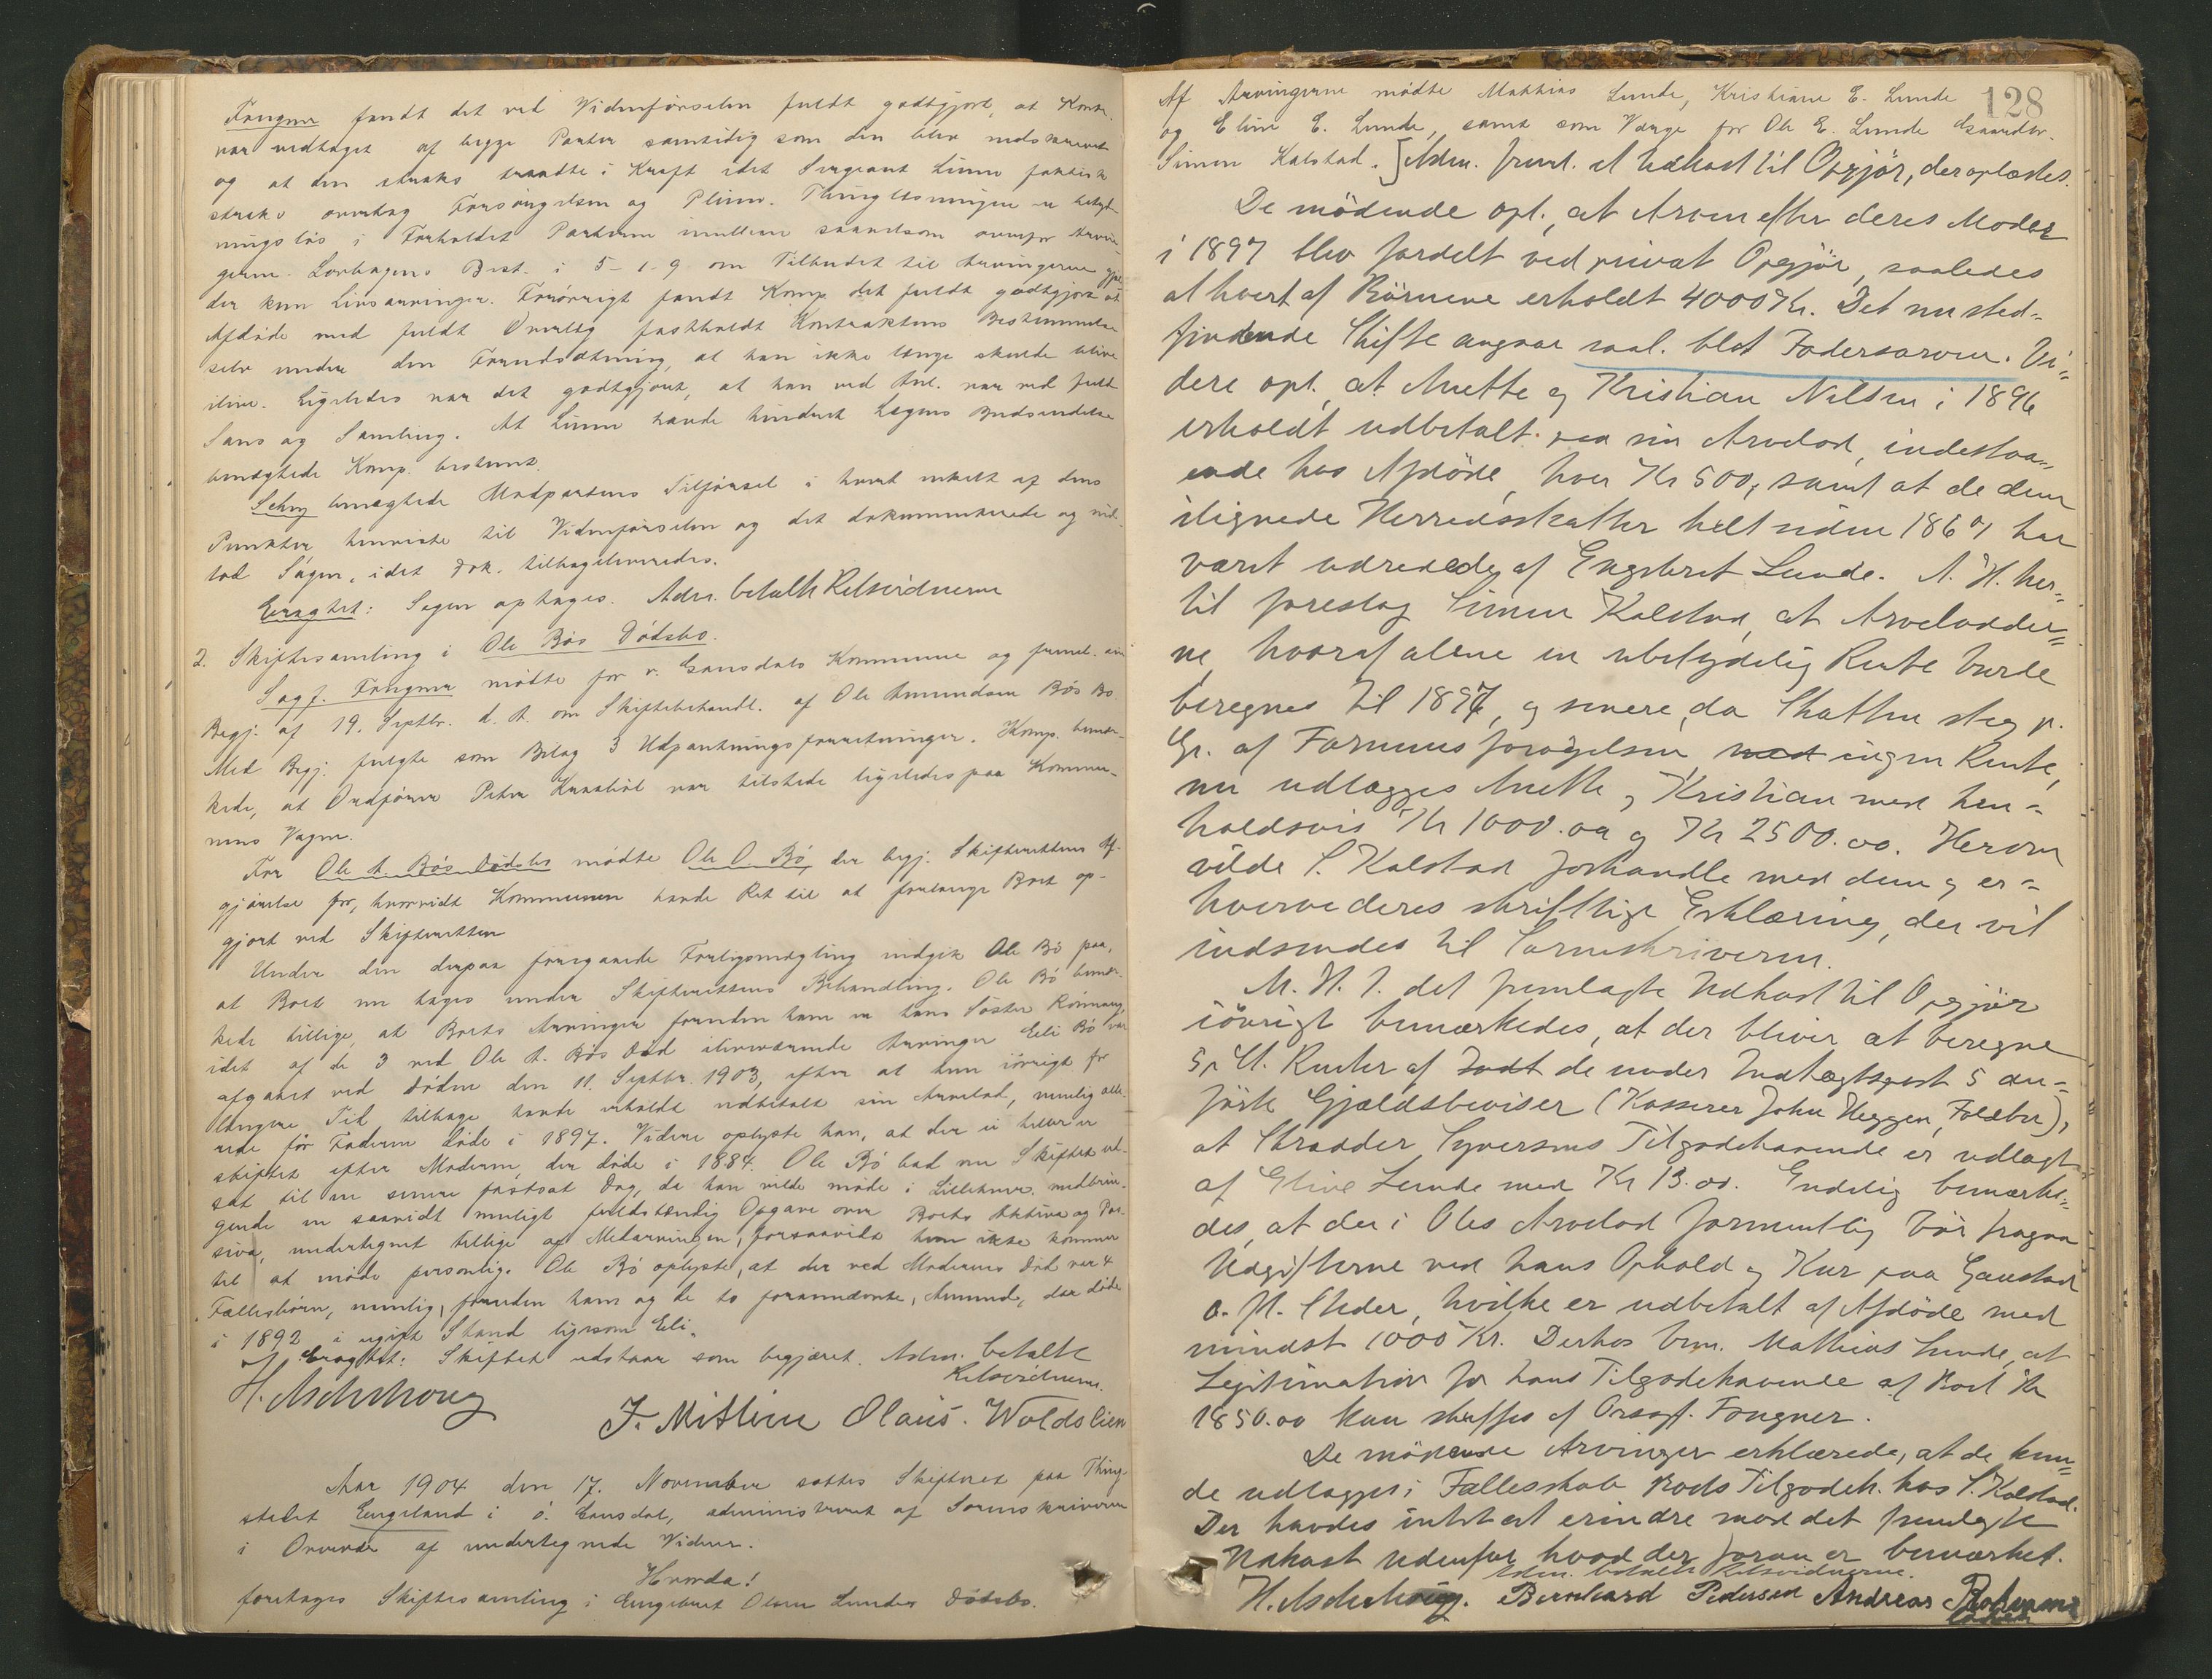 Fougner fandt det ved Vidneførselen fuldt godtgjort, at Kontr.
var vedtaget af begge Parter samtidig som den blev nedskrevet
og at den straks traadte i Kraft idet Sergeant Linne faktisk
straks overtog Forsørgelsen og Pleien. Thinglæsningen er betyd-
ningsløs i Forholdet Parterne imellem saavelsom overfor Arvin-
gerne. Lovbogens Best. i 5-1-9 om Tilbudet til Arvingerne gjæl-
der kun Livsarvinger. Forøvrigt fandt Komp. det fuldt godtgjort at
Afdøde med fuldt Overlæg fastholdt Kontraktens Bestemmelse
selv under den Forudsætning, at han ikke længe skulde blive
ilive. Ligeledes var det godtgjort, at han ved Anl. var ved fuld
Sans og Samling. At Linne havde hindret Lægens Budsendelse
benægtede Komp. bestemt.
benægtede Modpartens Tilførsel i hvert enkelt af dens
Punkter henviste til Vidneførselen og det dokumenterede og ind-
lod Sagen, idet Dok. tilbageleveredes.
Eragtet: Sagen optages. Adm. betalte Retsvidnerne
2. Skiftesamling i Ole Bøs Dødsbo.
Sagf. Fougner mødte for v. Gausdals Kommune og freml. sin
Begj. af 19. Septbr. d. A. om Skiftebehandl. af Ole Amundsen Bøs Bo
Med Begj. fulgte som Bilag 3 Udpantningsforretninger. Komp. bemær-
kede, at Ordfører Peter var tilstede ligeledes paa Kommu-
nens Vegne.
For Ole A. Bøs Dødsbo mødte Ole O. Bø, der begj. Skifterettens Af-
gjørelse for, hvorvidt Kommunen havde Ret til at forlange Boet op-
gjort ved Skifteretten
Under den derpaa foregaaede Forligsmægling indgik Ole Bø paa,
at Boet nu tages under Skifterettens Behandling. Ole Bø bemær-
kede tillige, at Boets Arvinger foruden ham er hans Søster Rønnaug,
idet af de 3 ved Ole A. Bøs Død ilivværende Arvinger Eli Bø var
afgaaet ved Døden den 11. Septbr. 1903, efter at hun iøvrigt for
længere Tid tilbage havde erholdt udbetalt sin Arvelod, nemlig alle-
rede før Faderen døde i 1897. Videre oplyste han, at der ei heller er
skiftet efter Moderen, der døde i 1884. Ole Bø bad nu Skiftet ud-
sat til en senere fastsat Dag, da han vilde møde i Lillehmr. medbrin-
gende en saavidt muligt fuldstændig Opgave over Boets Aktiva og Pas-
siva, undertegnet tillige af Medarvingen, forsaavidt hun ikke kommer
til at møde personlig. Ole Bø oplyste, at der ved Moderens Død var 4
Fællesbørn, nemlig, foruden ham og de to forannævnte, Amund, der døde
i 1892 i ugift Stand ligesom Eli.
Eragtet: Skiftet udstaar som begjæret. Adm. betalte
Retsvidnerne.
H. Aschehoug
J. Mittlien Olaus. Woldslien
Aar 1904 den 17. November sattes Skifteret paa Thing-
stedet Engeland i ö. Gausdal, administreret af Sorenskriveren
i Overvær af undertegnede Vidner.
Hvorda!
foretoges Skiftesamling i Engebret Olsen Lundes Dødsbo.
128
Af Arvingerne mødte Mathias Lunde, Kristiane E. Lunde
og Eline E. Lunde, samt som Værge for Ole E. Lunde Gaardbr.
Simen Kalstad. Adm. freml. et Udkast til Opgjör, der oplæstes.
De mödende opl. at Arven efter deres Moder
i 1897 blev fordelt ved privat Opgjör, saaledes
at hvert af Börnene erholdt 4000 Kr. Det nu sted-
findende Skifte angaar saal. blot Fadersarven. Vi-
dere opl. at Anette og Kristian Nilsen i 1896
erholdt udbetalt paa sin Arvelod, indestaa-
ende hos Afdöde, hver Kr 500, samt at de dem
ilignede Herredsskatter helt siden 1867 har
været udredede af Engebret Lunde. A. H. her-
til foreslog Simen Kalstad, at Arvelodder-
ne, hvoraf alene en ubetydelig Rente burde
beregnes til 1897, og senere, da Skatten steg p.
Gr. af Formuesforögelsen, ingen Rente,
nu udlægges Anette og Kristian med hen-
holdsvis Kr 1000.00 og Kr 2500.00. Herom
vilde S. Kalstad forhandle med dem og er-
hverve deres skriftlige Erklæring, der vil
indsendes til Sorenskriveren.
M. H. t. det fremlagte Udkast til Opgjör
iövrigt bemærkedes, at der bliver at beregne
5 p. Ct. Renter af de under Indtægtspost 5 an-
förte Gjældsbeviser (Kasserer John Heggen, Foldbu),
at Skrædder Syversens Tilgodehavende er udlagt
af Eline Lunde med Kr 13.00. Endelig bemærke-
des, at der i Oles Arvelod formentlig bör fragaa
Udgifterne ved hans Ophold og Kur paa Gaustad
o. fl. Steder, hvilke er udbetalt af Afdöde med
mindst 1000 Kr. Derhos bem. Mathias Lunde, at
Legitimation for hans Tilgodehavende af Boet Kr
1850.00 kan skaffes af Orsagf. Fougner.
De mödende Arvinger erklærede, at de kun-
de udlægges i Fællesskab Boets Tilgodeh. hos S. Kalstad.
Der havdes intet at erindre mod det fremlagte
Udkast udenfor hvad der foran er bemærket.
Adm. betalte Retsvidnerne.
H. Aschehoug. Bernhard Pedersen Andreas